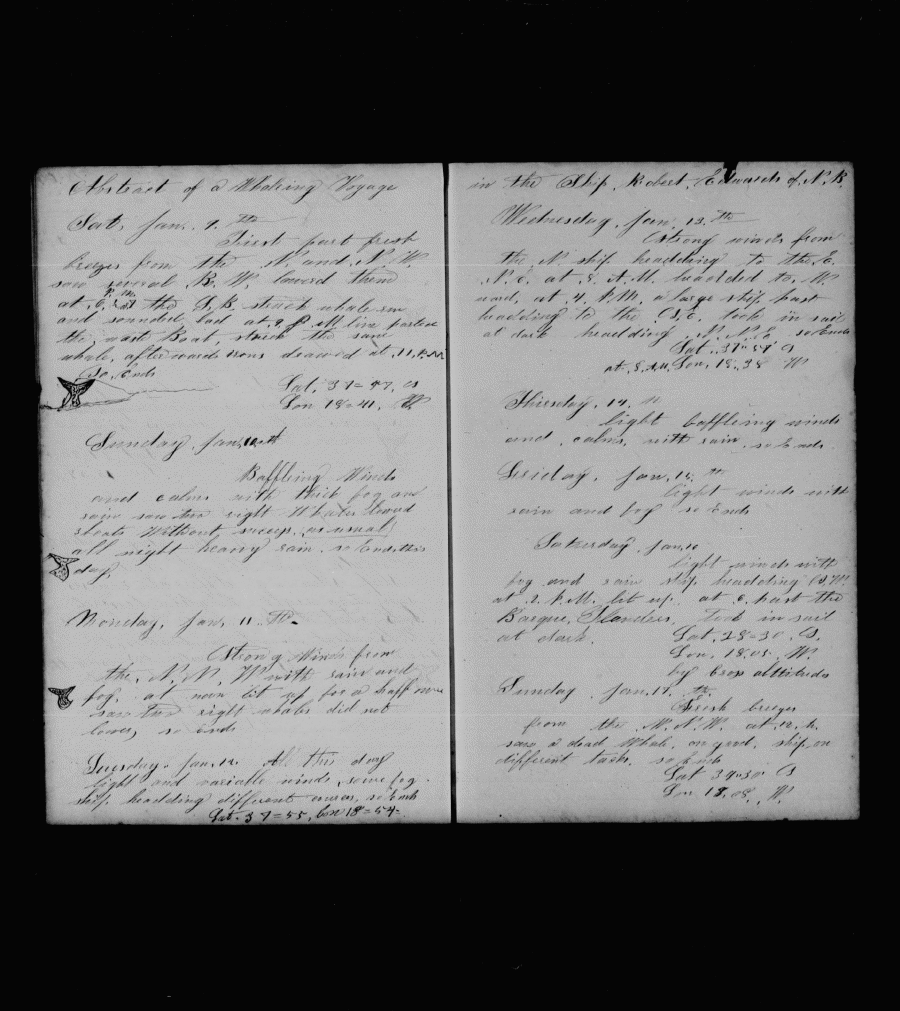 Abstract of a Whaleing Voyage
Sat, Jan. 9. Th
First part fresh
breezes from the N. and N. W.
saw several R. W. lowered them
at 6, P. M. the S. B. struck whale
and sounded, laid at 9, P. M line parted
the, waist Boat, struck the same
whale, afterwards irons drawed at, 11, P. M
So, Ends
Lat, 37=47, S
Lon 18=41, W
Sunday, Jan, 10th
Baffleing Winds
and calms with thick fog and
rain saw two right Whales lowerd
boats Without success, as usual,
all night heavy rain, so Ends, this
day,
Monday, Jan, 11. Th.
Strong Winds from
the, N. N. W with rain and
fog, at noon let up for a haff
saw two right whales did not
lower, so Ends
Tuesday. Jan, 12. All this day
light and variable winds, some fog.
ship, headding different courses, so Ends
Lat. 37=55, Lon 18=54.
in the Ship, Robert, Edwards of N, B.
Wednesday, Jan. 13. Th
Strong winds from
the N. ship headding to the E.
N. E. at 8, A. M. headded to, W.
ward, at 4, P. M. a large ship past
headding to the S, E. took in sail
at dark headding, N. N. E. so Ends
Lat. 37=57 S
at, 8, A. M. Lon, 18=38 W
Thirsday, 14,
light baffleing winds
and, calms, with rain, so Ends.
Friday, Jan, 15, th
light winds with
rain and fog so Ends
Saturday, Jan, 16
light winds with
fog and rain ship headding S W.
at 2. P. M. let up. at past the
Barque, Flanders, Took in sail
at dark, Lat, 38=30. S.
Lon, 18.05. W.
by altitudes
Sunday, Jan, 17, th.
Fresh breezes
from the, W. N. W. at, 12, M.
saw a dead Whale, no good, ship, on
different tacks, so Ends
Lat 37=30 S
Lon 18.08, W.